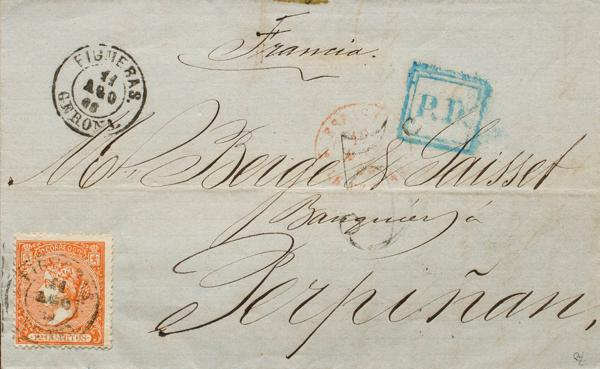 Francia.
FIGUERAS.
11
AGO
66
GERONA
P.D.
Mrs. Berge & Saisset
Banquier à
Perpiñan,
CORREOS
FIGUERAS
11
AGO